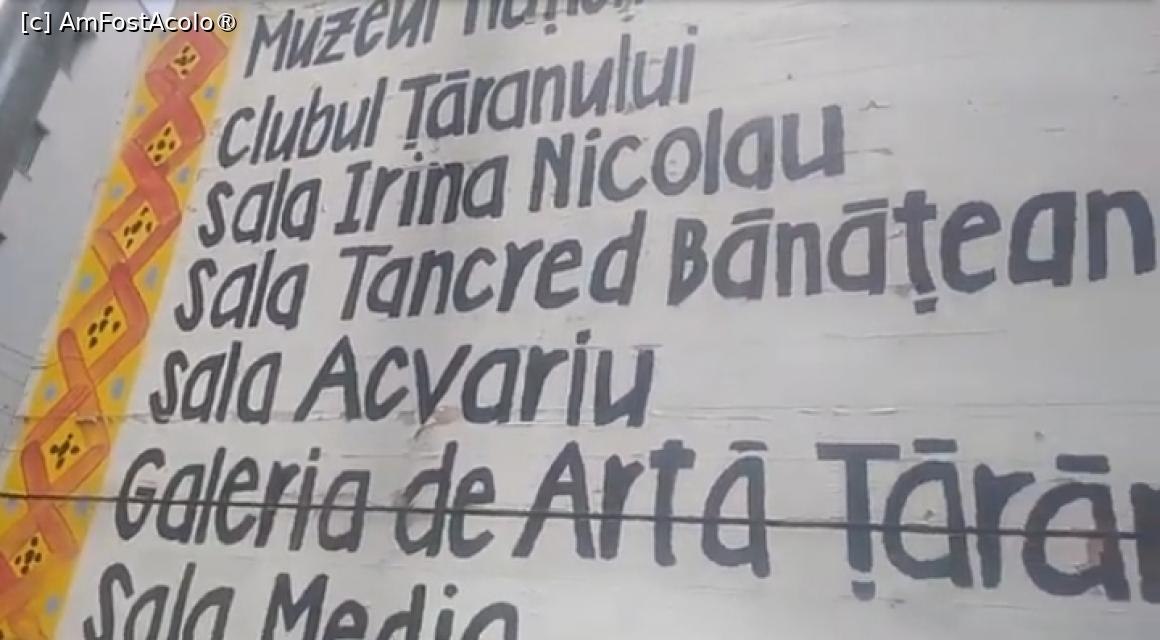 [c] AmFostAcolo®
Muzeul
Clubul Țāranului
Sala Irina Nicolau
Sala Tancred Bānāțean
Sala Acvariu
Galeria de Artā
Sala Media